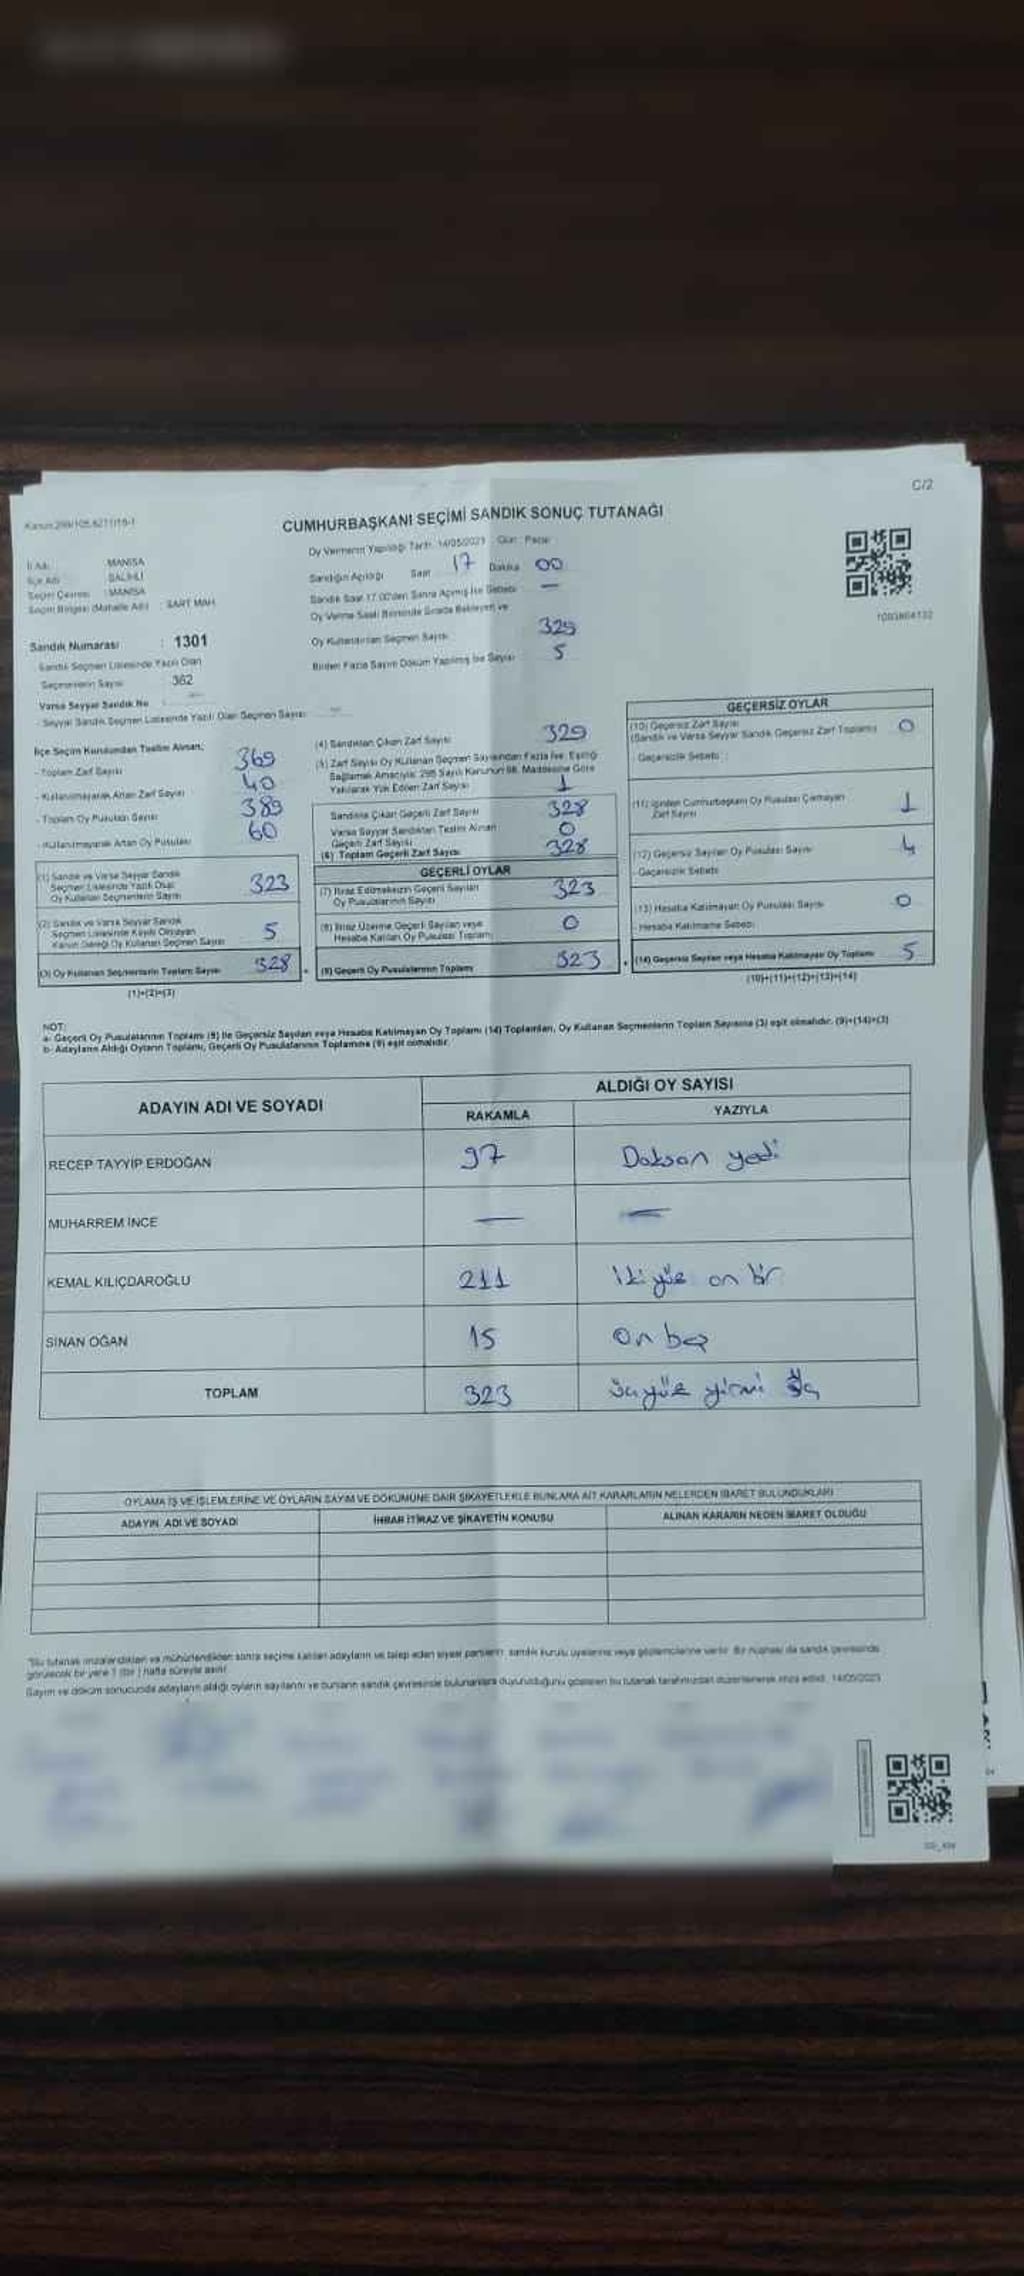 C/2
CUMHURBAŞKANI SEÇİMİ SANDIK SONUÇ TUTANAĞI
İl Adı : MANİSA
İlçe Adı : SALİHLİ
Seçim Çevresi : MANİSA
Seçim Bölgesi (Mahalle Adı) : SART MAH.
Sandık Numarası : 1301
Sandık Seçmen Listesinde Yazılı Olan
Seçmenlerin Sayısı : 362
Varsa Seyyar Sandık No
- Seyyar Sandık Seçmen Listesinde Yazılı Olan Seçmen Sayısı
Oy Vermenin Yapıldığı Tarih: 14/05/2023 Gün: Pazar
Sandığın Açıldığı Saat 17 Dakika 00
Sandık Saat 17.00'den Sonra Açılmış İse Sebebi —
Oy Verme Saati Bitiminde Sırada Bekleyen ve
Oy Kullandırılan Seçmen Sayısı 329
Birden Fazla Sayım Döküm Yapılmış İse Sayısı 5
İlçe Seçim Kurulundan Teslim Alınan;
- Toplam Zarf Sayısı 369
- Kullanılmayarak Artan Zarf Sayısı 40
- Toplam Oy Pusulası Sayısı 389
- Kullanılmayarak Artan Oy Pusulası 60
(1) Sandık ve Varsa Seyyar Sandık
Seçmen Listesinde Yazılı Olup
Oy Kullanan Seçmenlerin Sayısı 323
(2) Sandık ve Varsa Seyyar Sandık
Seçmen Listesinde Kayıtlı Olmayan
Kanun Gereği Oy Kullanan Seçmen Sayısı 5
(3) Oy Kullanan Seçmenlerin Toplam Sayısı 328
(1)+(2)=(3)
(4) Sandıktan Çıkan Zarf Sayısı 329
(5) Zarf Sayısı Oy Kullanan Seçmen Sayısından Fazla İse, Eşitliği
Sağlamak Amacıyla 298 Sayılı Kanunun 98. Maddesine Göre
Yakılarak Yok Edilen Zarf Sayısı 1
Sandıkta Çıkan Geçerli Zarf Sayısı 328
Varsa Seyyar Sandıktan Teslim Alınan
Geçerli Zarf Sayısı 0
(6) Toplam Geçerli Zarf Sayısı 328
GEÇERLİ OYLAR
(7) İtiraz Edilmeksizin Geçerli Sayılan
Oy Pusulalarının Sayısı 323
(8) İtiraz Üzerine Geçerli Sayılan veya
Hesaba Katılan Oy Pusulası Toplamı 0
(9) Geçerli Oy Pusulalarının Toplamı 323
GEÇERSİZ OYLAR
(10) Geçersiz Zarf Sayısı
(Sandık ve Varsa Seyyar Sandık Geçersiz Zarf Toplamı) 0
- Geçersizlik Sebebi :
(11) İçinden Cumhurbaşkanı Oy Pusulası Çıkmayan
Zarf Sayısı 1
(12) Geçersiz Sayılan Oy Pusulası Sayısı 4
- Geçersizlik Sebebi
(13) Hesaba Katılmayan Oy Pusulası Sayısı 0
- Hesaba Katılmama Sebebi
(14) Geçersiz Sayılan veya Hesaba Katılmayan Oy Toplamı 5
(10)+(11)+(12)+(13)=(14)
NOT:
a- Geçerli Oy Pusulalarının Toplamı (9) ile Geçersiz Sayılan veya Hesaba Katılmayan Oy Toplamı (14) Toplamları, Oy Kullanan Seçmenlerin Toplam Sayısına (3) eşit olmalıdır. (9)+(14)=(3)
b- Adayların Aldığı Oyların Toplamı, Geçerli Oy Pusulalarının Toplamına (9) eşit olmalıdır.
ADAYIN ADI VE SOYADI
ALDIĞI OY SAYISI
RAKAMLA YAZIYLA
RECEP TAYYİP ERDOĞAN 97 Doksan yedi
MUHARREM İNCE — —
KEMAL KILIÇDAROĞLU 211 İkiyüz on bir
SİNAN OĞAN 15 On beş
TOPLAM 323 üçyüz yirmi üç
OYLAMA İŞ VE İŞLEMLERİNE VE OYLARIN SAYIM VE DÖKÜMÜNE DAİR ŞİKAYETLERLE BUNLARA AİT KARARLARIN NELERDEN İBARET BULUNDUKLARI
ADAYIN ADI VE SOYADI İHBAR İTİRAZ VE ŞİKAYETİN KONUSU ALINAN KARARIN NEDEN İBARET OLDUĞU
*Bu tutanak imzalandıktan ve mühürlendikten sonra seçime katılan adayların ve talep eden siyasi partilerin sandık kurulu üyelerine veya gözlemcilerine verilir. Bir nüshası da sandık çevresinde
görülecek bir yere 1 (bir) hafta süreyle asılır.
Sayım ve döküm sonucunda adayların aldığı oyların sayılarını ve bunların sandık çevresinde bulunanlara duyurulduğunu gösteren bu tutanak tarafımızdan düzenlenerek imza edildi. 14/05/2023